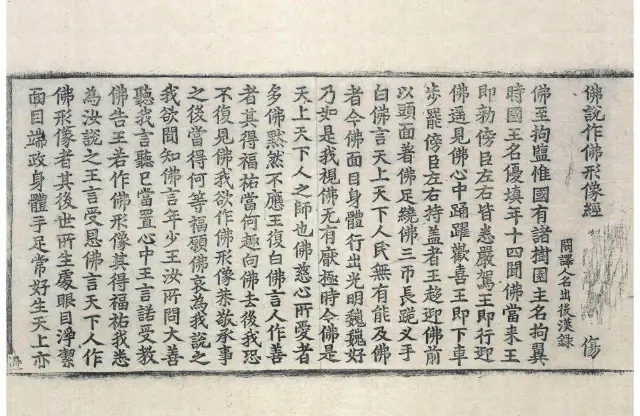 佛說作佛形像經 傷
闕譯人名出後漢錄
佛至拘鹽惟國有諸樹園主名拘翼
時國王名優填年十四聞佛當來王
即勅傍臣左右皆悉嚴駕王即行迎
佛遥見佛心中踊躍歡喜王即下車
步罷傍臣左右持盖者王趍迎佛前
以頭面著佛足繞佛三帀長跪叉手
白佛言天上天下人民無有能及佛
者今佛面目身體行出光明巍巍好
乃如是我視佛无有厭極時今佛是
天上天下人之師也佛慈心所愛者
多佛黙然不應王復白佛言人作善
者其得福祐當何趣向佛去後我恐
不復見佛我欲作佛形像恭敬承事
之後當得何等福願佛哀為我說之
我欲問知佛言年少王汝所問大善
聽我言聽已當置心中王言諾受教
佛告王若作佛形像其得福祐我悉
為汝說之王言受恩佛言天下人作
佛形像者其後世所生處眼目淨潔
面目端政身體手足常好生天上亦